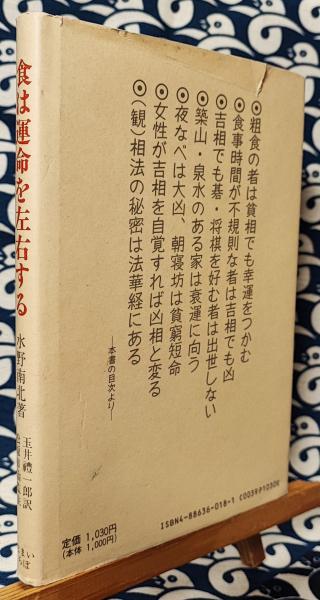 食は運命を左右する
水野南北著
玉井禮一郎訳
◉粗食の者は貧相でも幸運をつかむ
◉食事時間が不規則な者は吉相でも凶
◉吉相でも碁・将棋を好む者は出世しない
◉築山・泉水のある家は衰運に向う
◉夜なべは大凶、朝寝坊は貧窮短命
◉女性が吉相を自覚すれば凶相と変る
◉(観)相法の秘密は法華経にある
―本書の目次より―
定価 1,030円
(本体 1,000円)
ISBN4-88636-018-1 C0039 P1030E